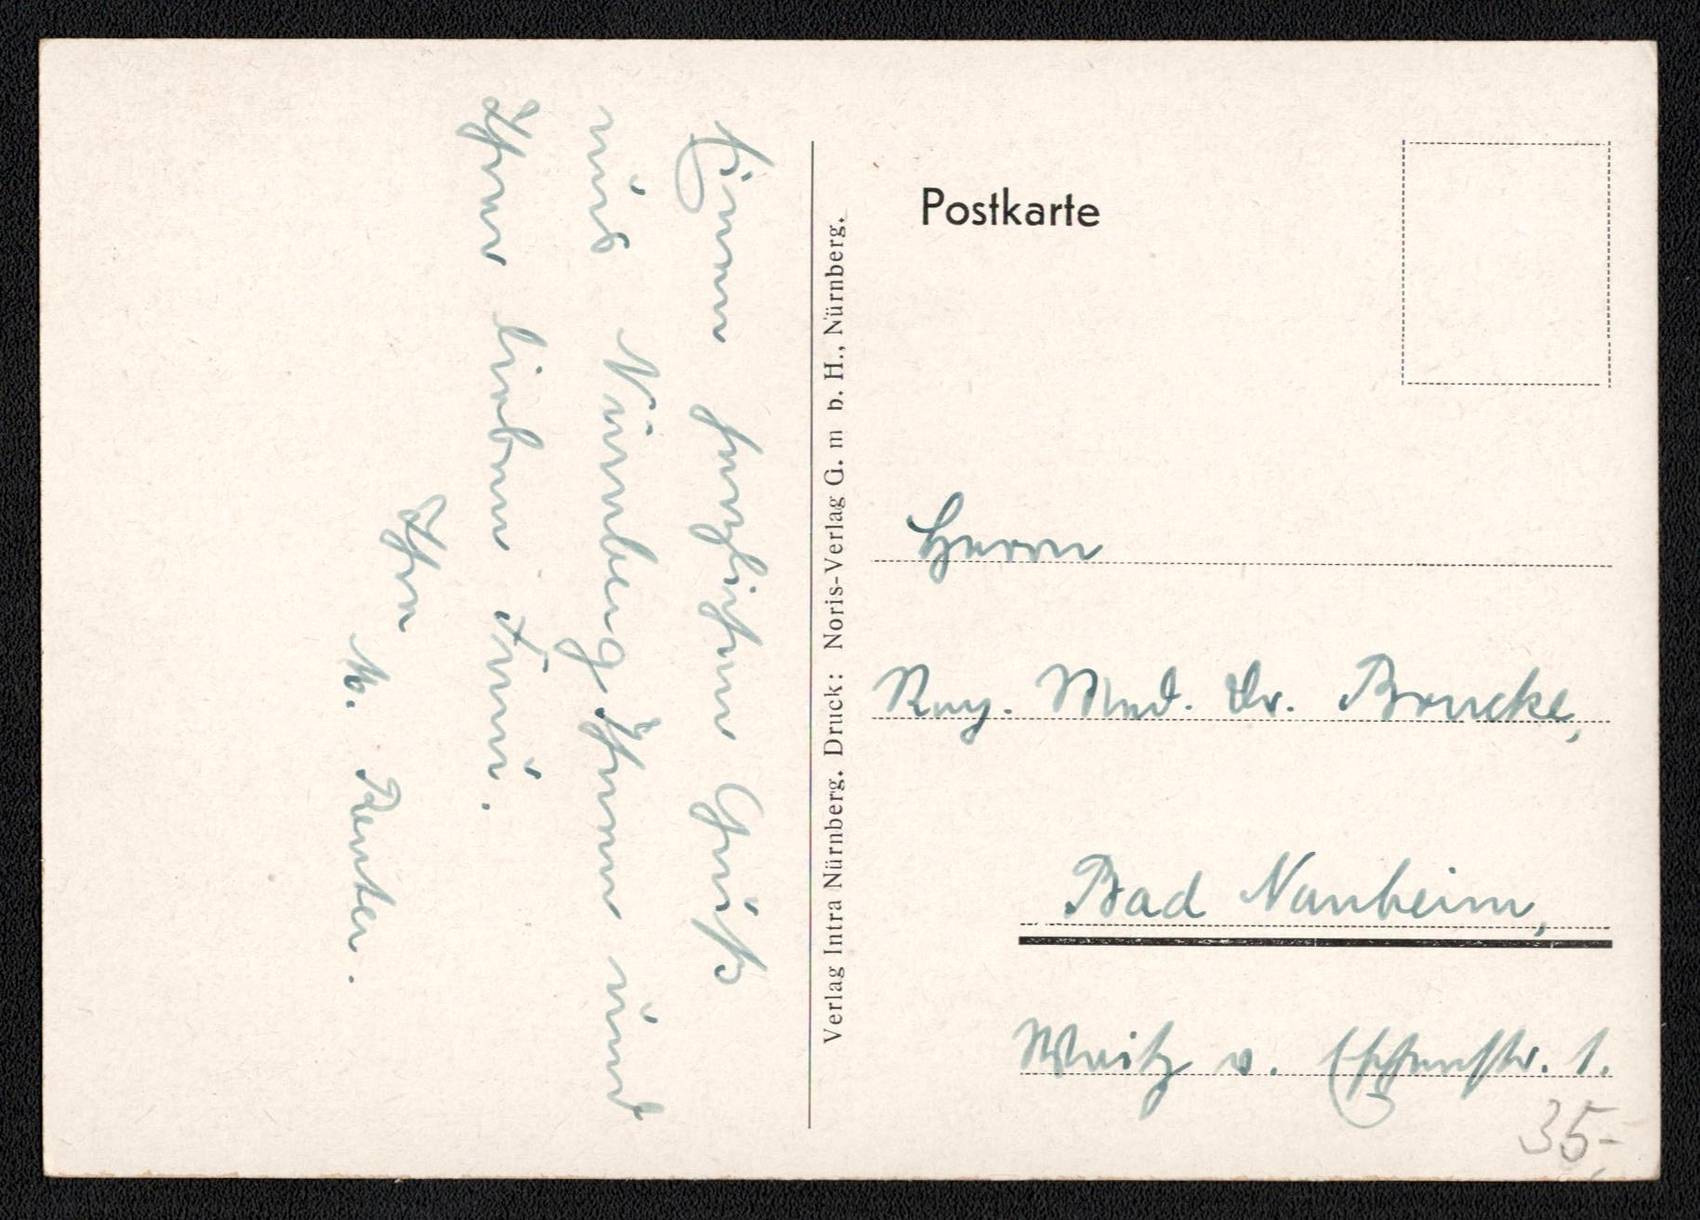 Einen herzlichen Gruß
aus Nürnberg Ihnen und
Ihrer lieben Frau.
Ihr
M. Reuter.
Verlag Intra Nürnberg. Druck: Noris-Verlag G. m b. H., Nürnberg.
Postkarte
Herrn
Reg. Med. Dr. Brucke,
Bad Nauheim,
Waitz v. Eschenstr. 1.
35-